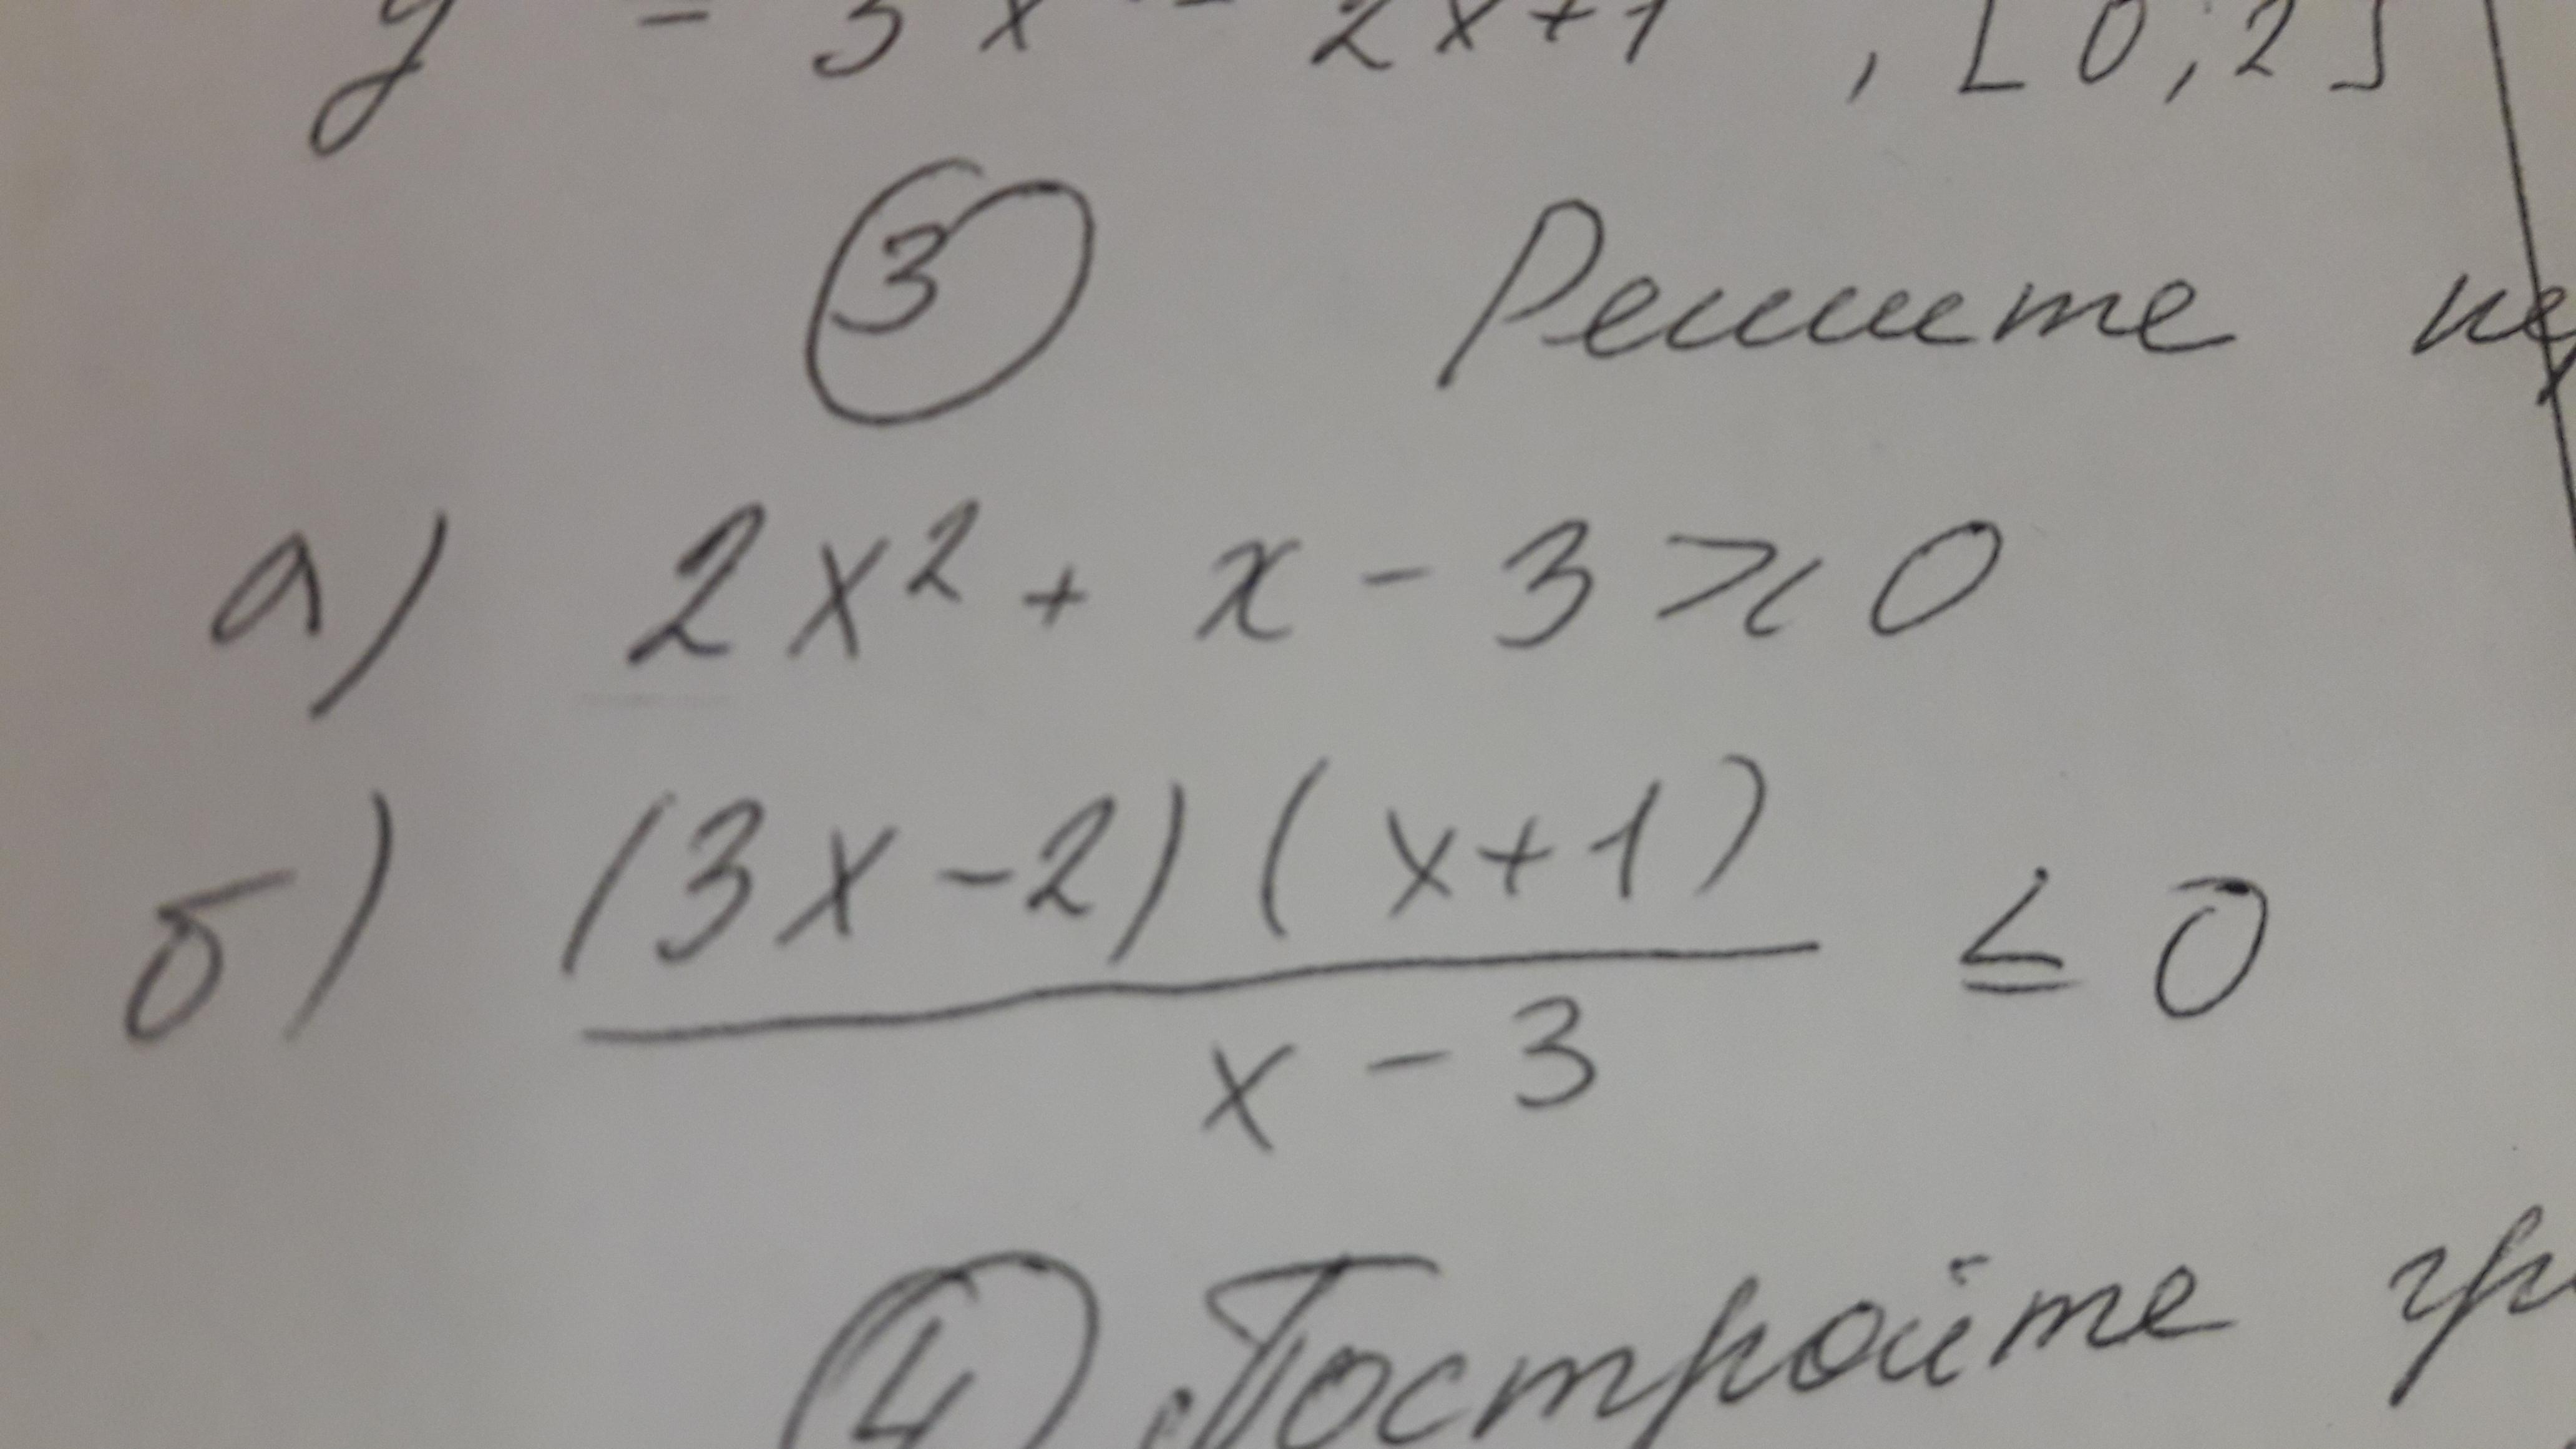 y = 3x - 2x+1 , [0;2]
③ Решите
а) 2x² + x - 3 ⩾ 0
б) (3x-2)(x+1)
x - 3 ≤ 0
④ Постройте